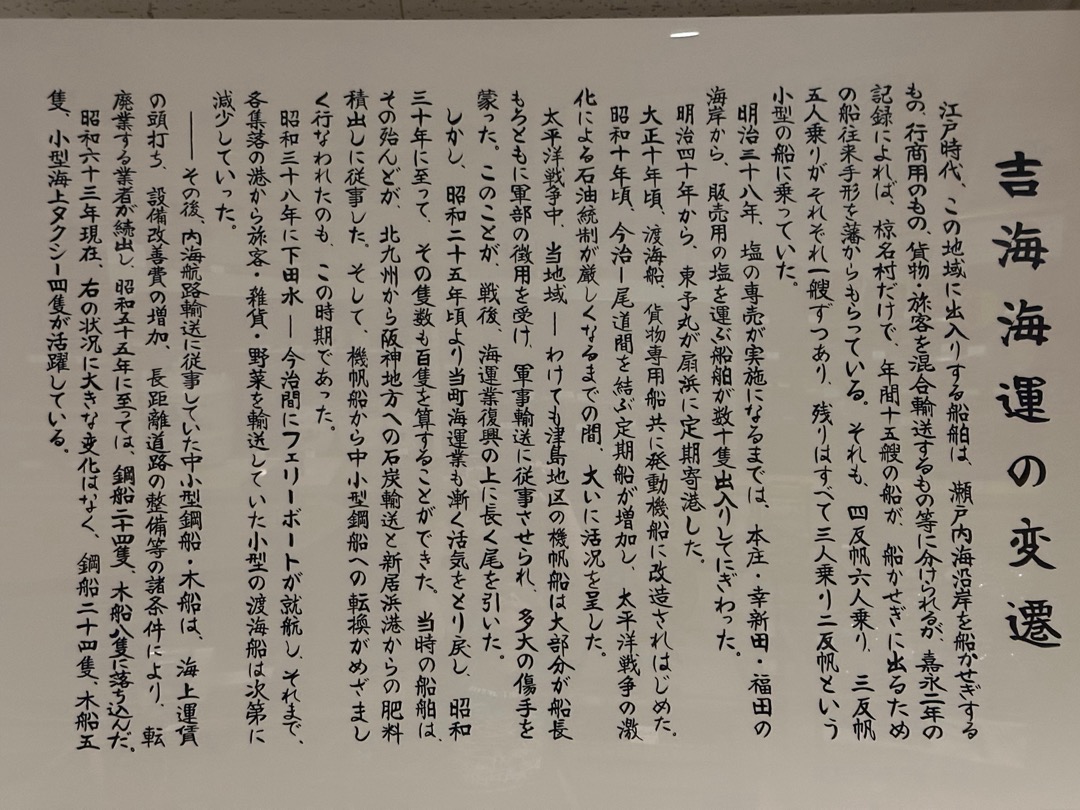 吉海海運の変遷
江戸時代、この地域に出入りする船舶は、瀬戸内海沿岸を船かせぎする
もの、行商用のもの、貨物・旅客を混合輸送するもの等に分けられるが、嘉永二年の
記録によれば、椋名村だけで、年間十五艘の船が、船かせぎに出るため
の船往来手形を藩からもらっている。それも、四反帆六人乗り、三反帆
五人乗りがそれぞれ一艘ずつあり、残りはすべて三人乗り二反帆という
小型の船に乗っていた。
明治三十八年、塩の専売が実施になるまでは、本庄・幸新田・福田の
海岸から、販売用の塩を運ぶ船舶が数十隻出入りしてにぎわった。
明治四十年から、東予丸が扇浜に定期寄港した。
大正十年頃、渡海船、貨物専用船共に発動機船に改造されはじめた。
昭和十年頃、今治—尾道間を結ぶ定期船が増加し、太平洋戦争の激
化による石油統制が厳しくなるまでの間、大いに活況を呈した。
太平洋戦争中、当地域—わけても津島地区の機帆船は大部分が船長
もろともに軍部の徴用を受け、軍事輸送に従事させられ、多大の傷手を
蒙った。このことが、戦後、海運業復興の上に長く尾を引いた。
しかし、昭和二十五年頃より当町海運業も漸く活気をとり戻し、昭和
三十年に至って、その隻数も百隻を算することができた。当時の船舶は、
その殆んどが、北九州から阪神地方への石炭輸送と新居浜港からの肥料
積出しに従事した。そして、機帆船から中小型鋼船への転換がめざまし
く行なわれたのも、この時期であった。
昭和三十八年に下田水—今治間にフェリーボートが就航し、それまで、
各集落の港から旅客・雑貨・野菜を輸送していた小型の渡海船は次第に
減少していった。
——その後、内海航路輸送に従事していた中小型鋼船・木船は、海上運賃
の頭打ち、設備改善費の増加、長距離道路の整備等の諸条件により、転
廃業する業者が続出し、昭和五十五年に至っては、鋼船二十四隻、木船八隻に落ち込んだ。
昭和六十三年現在、右の状況に大きな変化はなく、鋼船二十四隻、木船五
隻、小型海上タクシー四隻が活躍している。